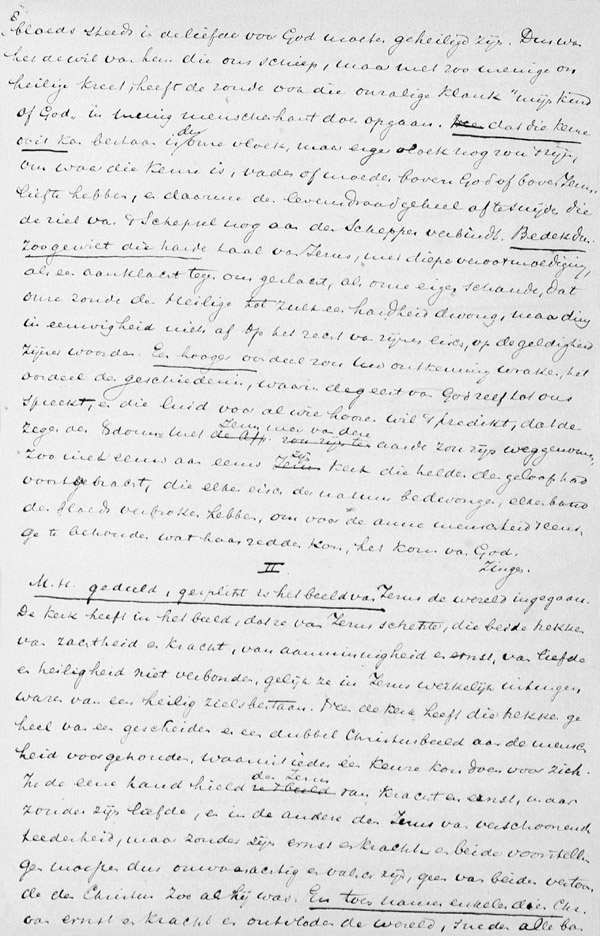 bloeds steeds in de liefde voor God moeten geheiligd zijn. Dus was
het de wil van hem die ons schiep, maar met zoo menige on
heilige kreet, heeft de zonde ook die onzalige klank "mijn kind
of God" in menig menschenhart doen opgaan. dat die keuze
ooit kan bestaan is de onze vloek, maar eigen vloek nog zou 't zijn,
om waar die keuze is, vader of moeder boven God of boven Jezus
liefte hebben, en daarom den levensdraad geheel af te snijden die
de ziel van 't Schepsel nog aan den Schepper verbindt. Bedekt dus
zoo ge wilt die harde taal van Jezus, met diepe verootmoediging,
als een aanklacht tegen ons geslacht, als onze eigen schande, dat
onze zonde den Heilige tot zulk een hardheid dwong, maar ding
in eeuwigheid niets af op het recht van zijnen eisch, op de geldigheid
zijner woorden. Een hooger oordeel zou uw ontkenning wraken, het
oordeel der geschiedenis, waarin de geest van God zelf tot ons
spreekt, en die luid voor al wie hooren wil 't predikt, dat de
zegen des Christendoms met Jezus weer van deze aarde zou zijn weggenomen,
zoo niet eens aan eens zijn kerk die helden des geloofs had
voortgebracht, die elken eisch der natuur bedwongen, elken band
des bloeds verbroken hebben, om voor de arme menschheid 't eeni-
ge te behouden wat haar redden kon, het kom van God.
Zingen.
II
M. H. gedeeld, gesplitst is het beeld van Jezus de wereld ingegaan.
De kerk heeft in het beeld, dat ze van Jezus schetste, die beide trekken
van zachtheid en kracht, van aanminnigheid en ernst, van liefde
en heiligheid niet verbonden, gelijk ze in Jezus werkelijk uitingen
waren van een heilig zielsbestaan. Neen de kerk heeft die trekken ge
heel van een gescheiden en een dubbel Christusbeeld aan de mensch
heid voorgehouden, waaruit ieder een keuze kon doen voor zich.
In de eene hand hield ze den Jezus van kracht en ernst, maar
zonder zijn liefde, en in de andere den Jezus van verschoonende
teederheid, maar zonder zijn ernst en kracht en beide voorstellin
gen moesten dus onwaarachtig en valsch zijn, geen van beiden vertoon
de den Christus zoo als hij was. En toen namen enkelen dien Chr.
van ernst en kracht en ontvloden de wereld, sneden alle ban